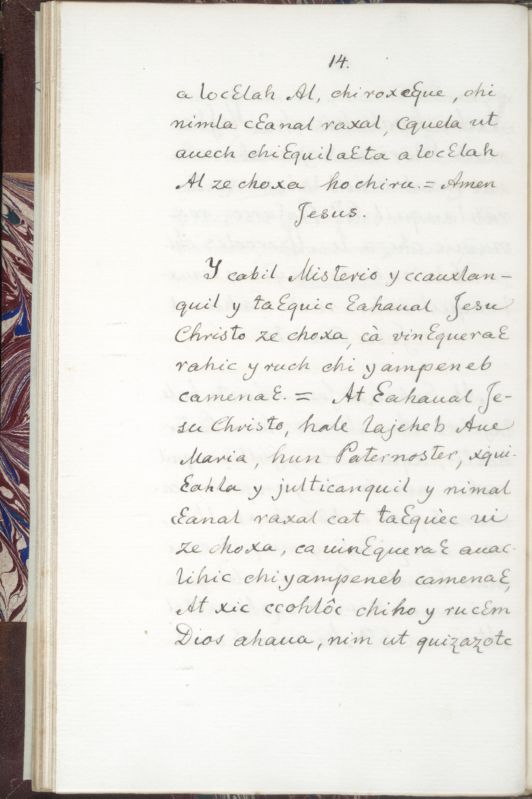 14.
a locƐlah Al, chi roxeƐue, chi
nimla cƐanal raxal, Cquela ut
auech chiƐquilaƐta a locƐlah
Al ze choxa ho chiru. = Amen
Jesus.
Y cabil Misterio y ccauxlan-
quil y taƐquic Ɛahaual Jesu
Christo ze choxa, cà vinƐqueraƐ
rahic y ruch chi yampeneb
camenaƐ. = At Ɛahaual Je-
su Christo, hale lajeheb Aue
Maria, hun Paternoster, xqui-
Ɛohla y julticanquil y nimal
Ɛanal raxal cat taƐquèc ui
ze choxa, ca uinƐqueraƐ auac-
lihic chi yampeneb camenaƐ,
At xic ccohlôc chiho y rucƐm
Dios ahaua, nim ut quiz̨az̨otc